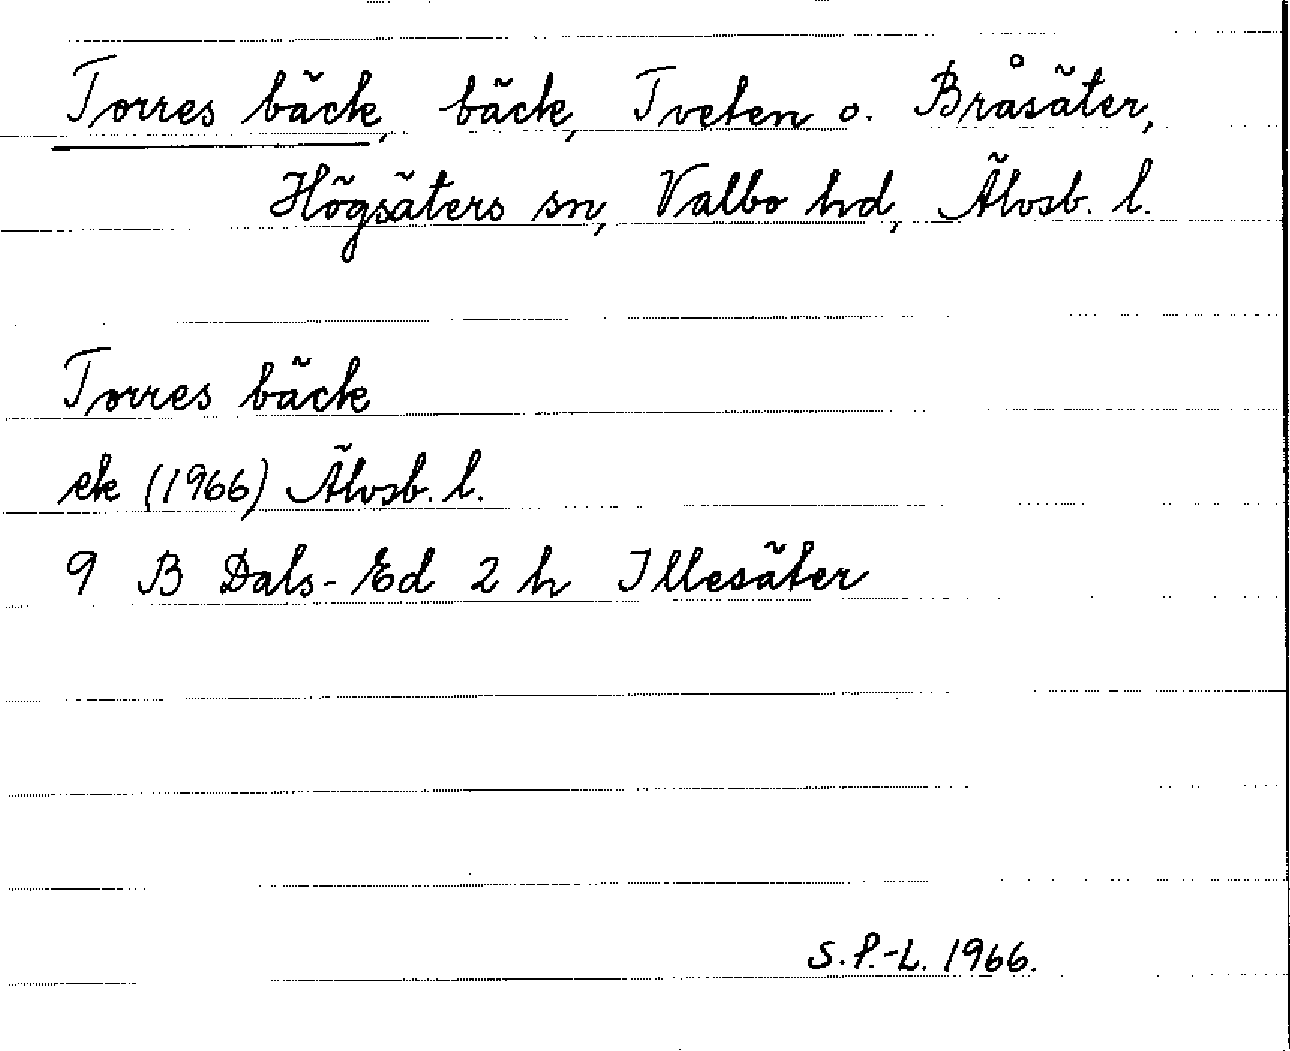 Torres bäck, bäck, Tveten o. Bråsäter,
Högsäters sn, Valbo hd, Älvsb. l.
Torres bäck
ek (1966) Älvsb. l.
9 B Dals-Ed 2 h Illesäter
S.P.-L. 1966.